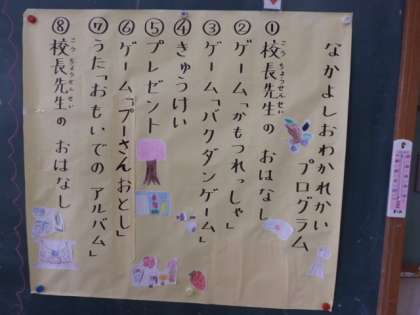 なかよしおわかれかい
プログラム
①校長先生の おはなし
こうちょうせんせい
②ゲーム「かもつれっしゃ」
③ゲーム「バクダンゲーム」
④きゅうけい
⑤プレゼント
⑥ゲーム「プーさんおとし」
⑦うた「おもいでの アルバム」
⑧校長先生の おはなし
こうちょうせんせい